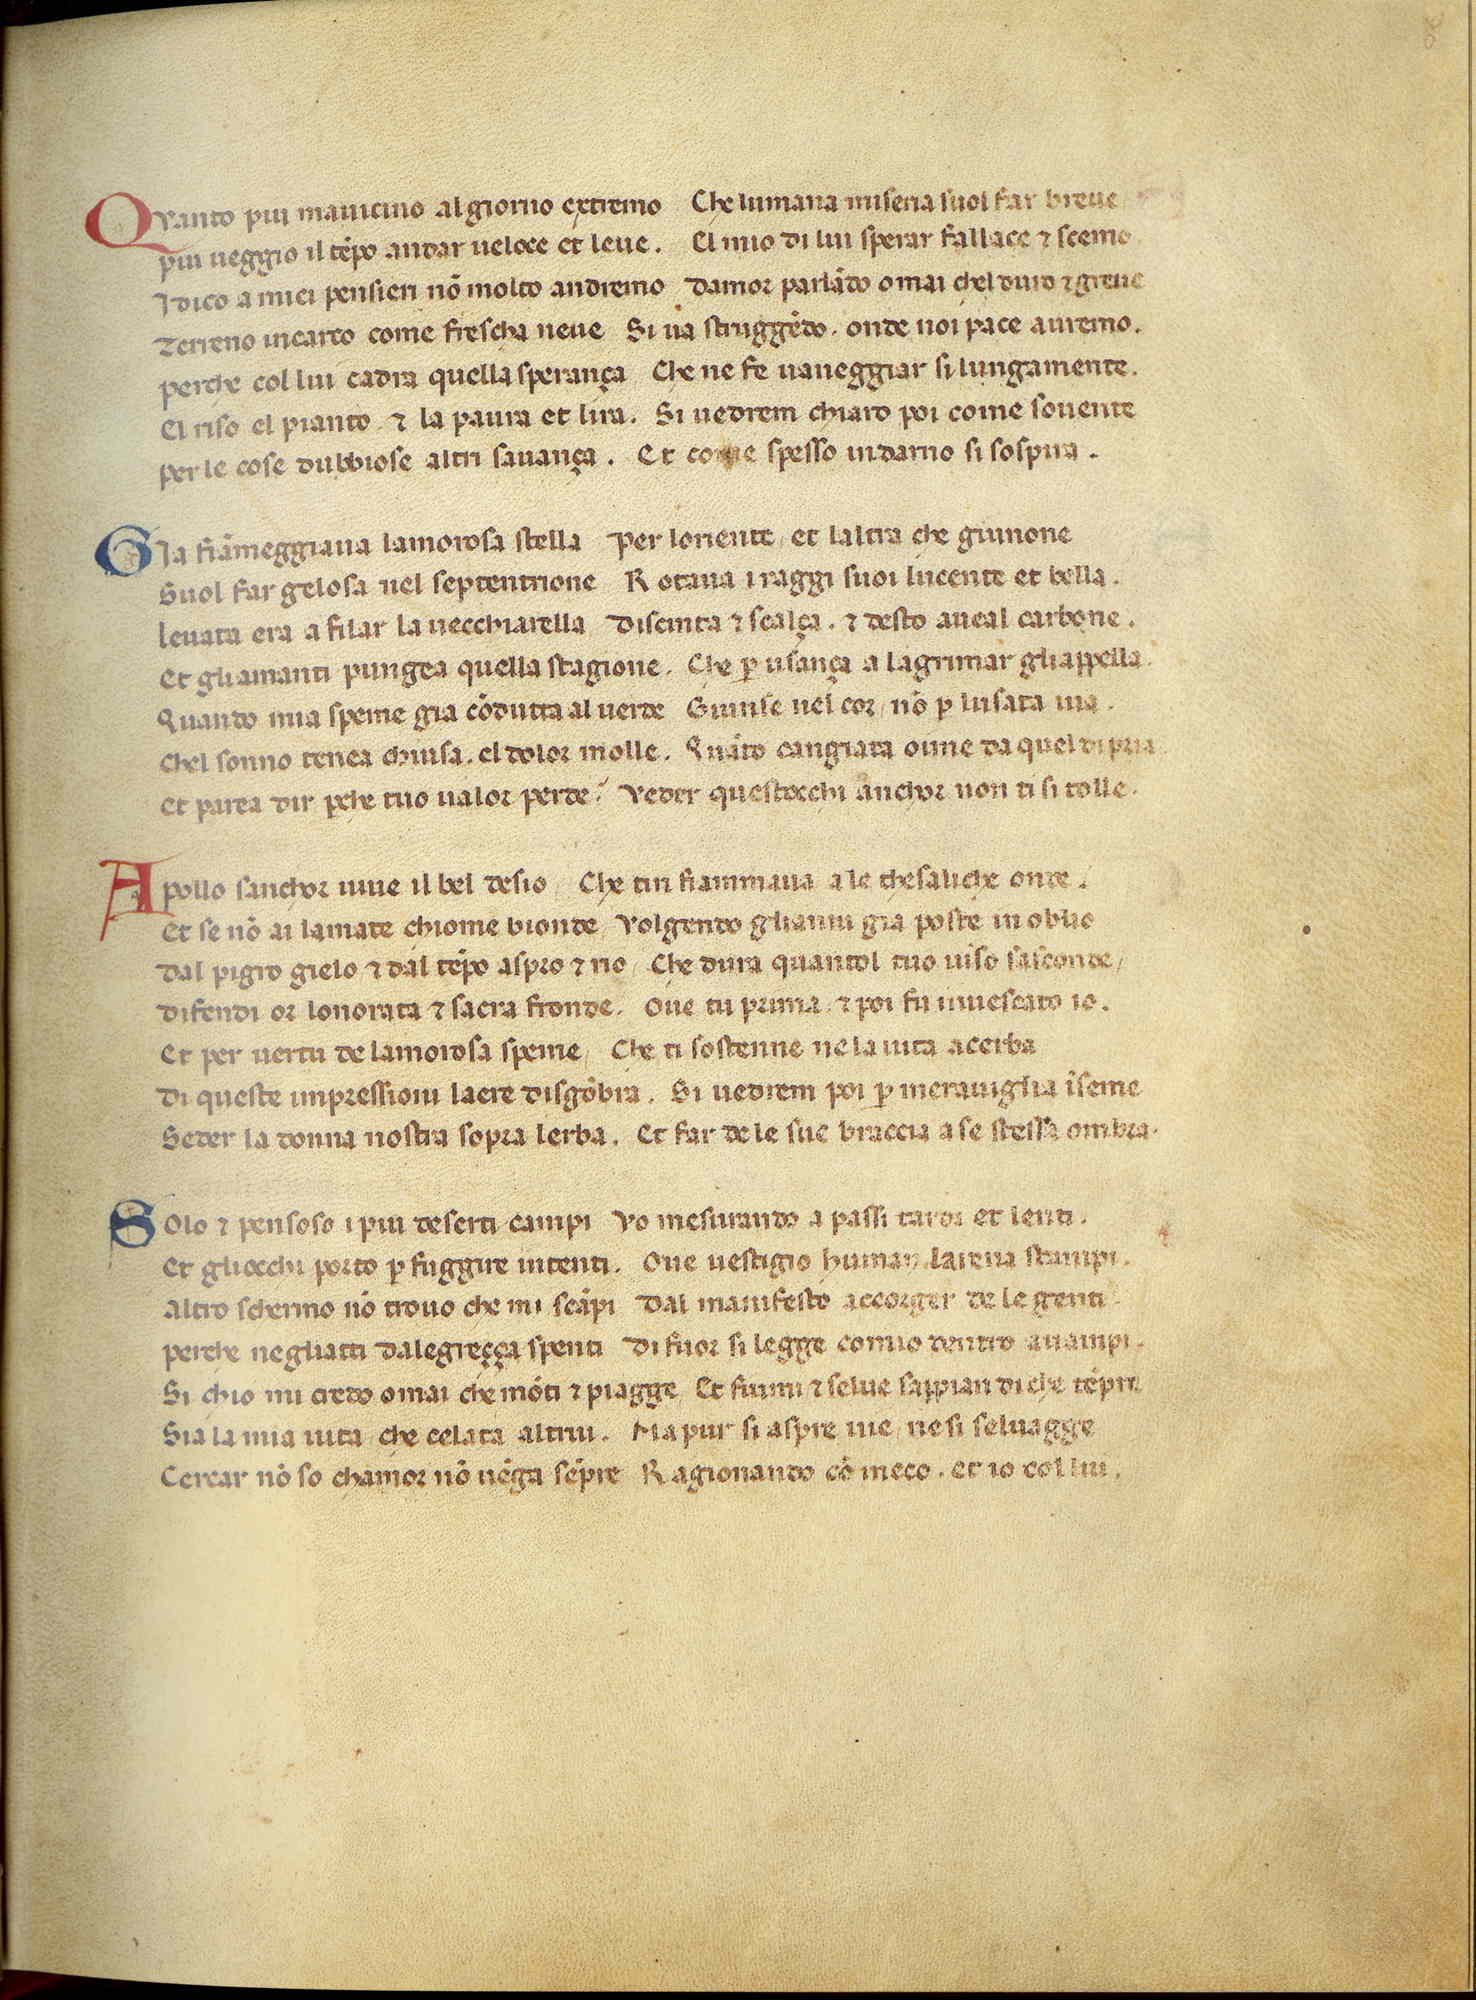 Quanto piu mauicino al giorno extremo Che lumana miseria suol far breue
piu ueggio il tẽpo andar ueloce et leue. El mio di lui sperar fallace ⁊ scemo
J dico a miei pensieri nõ molto andremo damor parlãdo omai chel duro ⁊ greue
Terreno incarco come frescha neue Si ua struggẽdo. onde noi pace auremo.
perche col lui cadra quella sperança Che ne fe uaneggiar si lungamente.
El riso el pianto. ⁊ la paura et lira. Si uedrem chiaro poi come souente
per le cose dubbiose altri sauança. Et come spesso indarno si sospira.
Gia fiãmeggiaua lamorosa stella per loriente / et laltra che giunone
Suol far gelosa nel septentrione Rotaua i raggi suoi lucente et bella.
leuata era a filar la uecchiarella discinta ⁊ scalça. ⁊ desto aueal carbone.
Et gliamanti pungea quella stagione. Che ꝑ usança a lagrimar gliappella.
Quando mia speme gia cõdutta al uerde Giunse nel cor / nõ ꝑ lusata uia.
Chel sonno tenea chiusa. el dolor molle. Quãto cangiata oime da quel di pria
Et parea dir ꝑche tuo ualor perde? Veder questocchi anchor non ti si tolle.
Apollo sanchor uiue il bel desio / Che tin fiammaua a le thesaliche onde.
Et se nõ ai lamate chiome bionde / Volgendo glianni gia poste in oblio
dal pigro gielo ⁊ dal tẽpo aspro ⁊ rio / Che dura quantol tuo uiso sasconde /
difendi or lonorata ⁊ sacra fronde. Oue tu prima. ⁊ poi fu inuescato io.
Et per uertu de lamorosa speme / Che ti sostenne ne la uita acerba
di queste impressioni laere disgõbra. Si uedrem poi ꝑ merauiglia ĩseme
Seder la donna nostra sopra lerba. Et far de le sue braccia a se stessa ombra.
Solo ⁊ pensoso i piu deserti campi Vo mesurando a passi tardi et lenti.
Et gliocchi porto ꝑ fuggire intenti. Oue uestigio human larena stampi.
Altro schermo nõ trouo che mi scãpi dal manifesto accorger de le genti.
perche negliatti dalegreçça spenti di fuor si legge comio dentro auampi.
Si chio mi credo omai che mõti ⁊ piagge Et fiumi ⁊ selue sappian di che tẽpre
Sia la mia uita / che celata altrui. Ma pur si aspre uie / ne si seluagge
Cercar nõ so chamor nõ uẽga sẽpre Ragionando cõ meco. et io col lui.